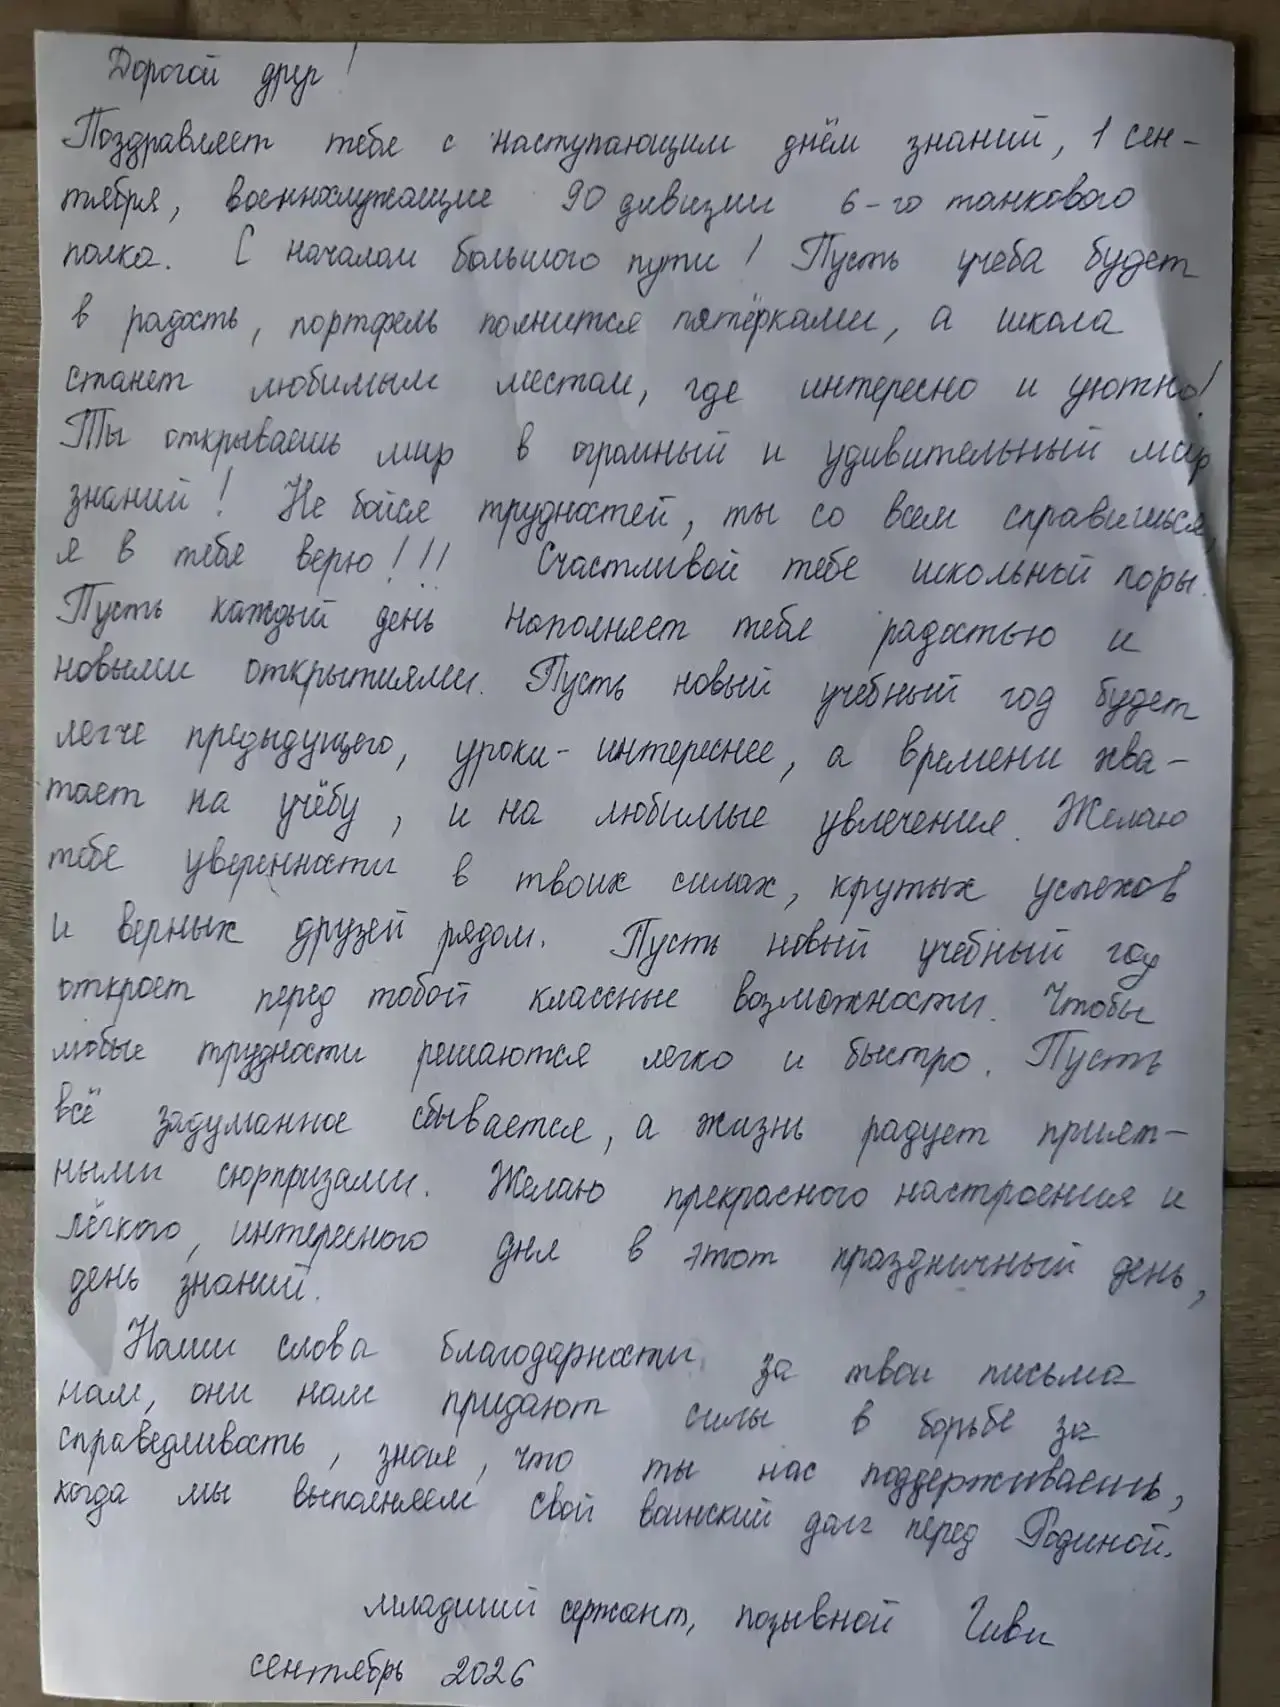 Дорогой друг!
Поздравляет тебя с наступающим днём знаний, 1 сен-
тября, военнослужащие 90 дивизии 6-го танкового
полка. С началом большого пути! Пусть учеба будет
в радость, портфель полнится пятёрками, а школа
станет любимым местом, где интересно и уютно!
Ты открываешь мир в огромный и удивительный мир
знаний! Не бойся трудностей, ты со всем справишься,
я в тебя верю!!! Счастливой тебе школьной поры.
Пусть каждый день наполняет тебя радостью и
новыми открытиями. Пусть новый учебный год будет
легче предыдущего, уроки - интереснее, а времени хва-
тает на учёбу, и на любимые увлечения. Желаю
тебе уверенности в твоих силах, крутых успехов
и верных друзей рядом. Пусть новый учебный год
откроет перед тобой классные возможности. Чтобы
любые трудности решаются легко и быстро. Пусть
всё задуманное сбывается, а жизнь радует прият-
ными сюрпризами. Желаю прекрасного настроения и
лёгкого, интересного дня в этот праздничный день,
день знаний.
Наши слова благодарности за твои письма
нам, они нам придают силы в борьбе за
справедливость, зная, что ты нас поддерживаешь,
когда мы выполняем свой воинский долг перед Родиной.
младший сержант, позывной Гиви
сентябрь 2026